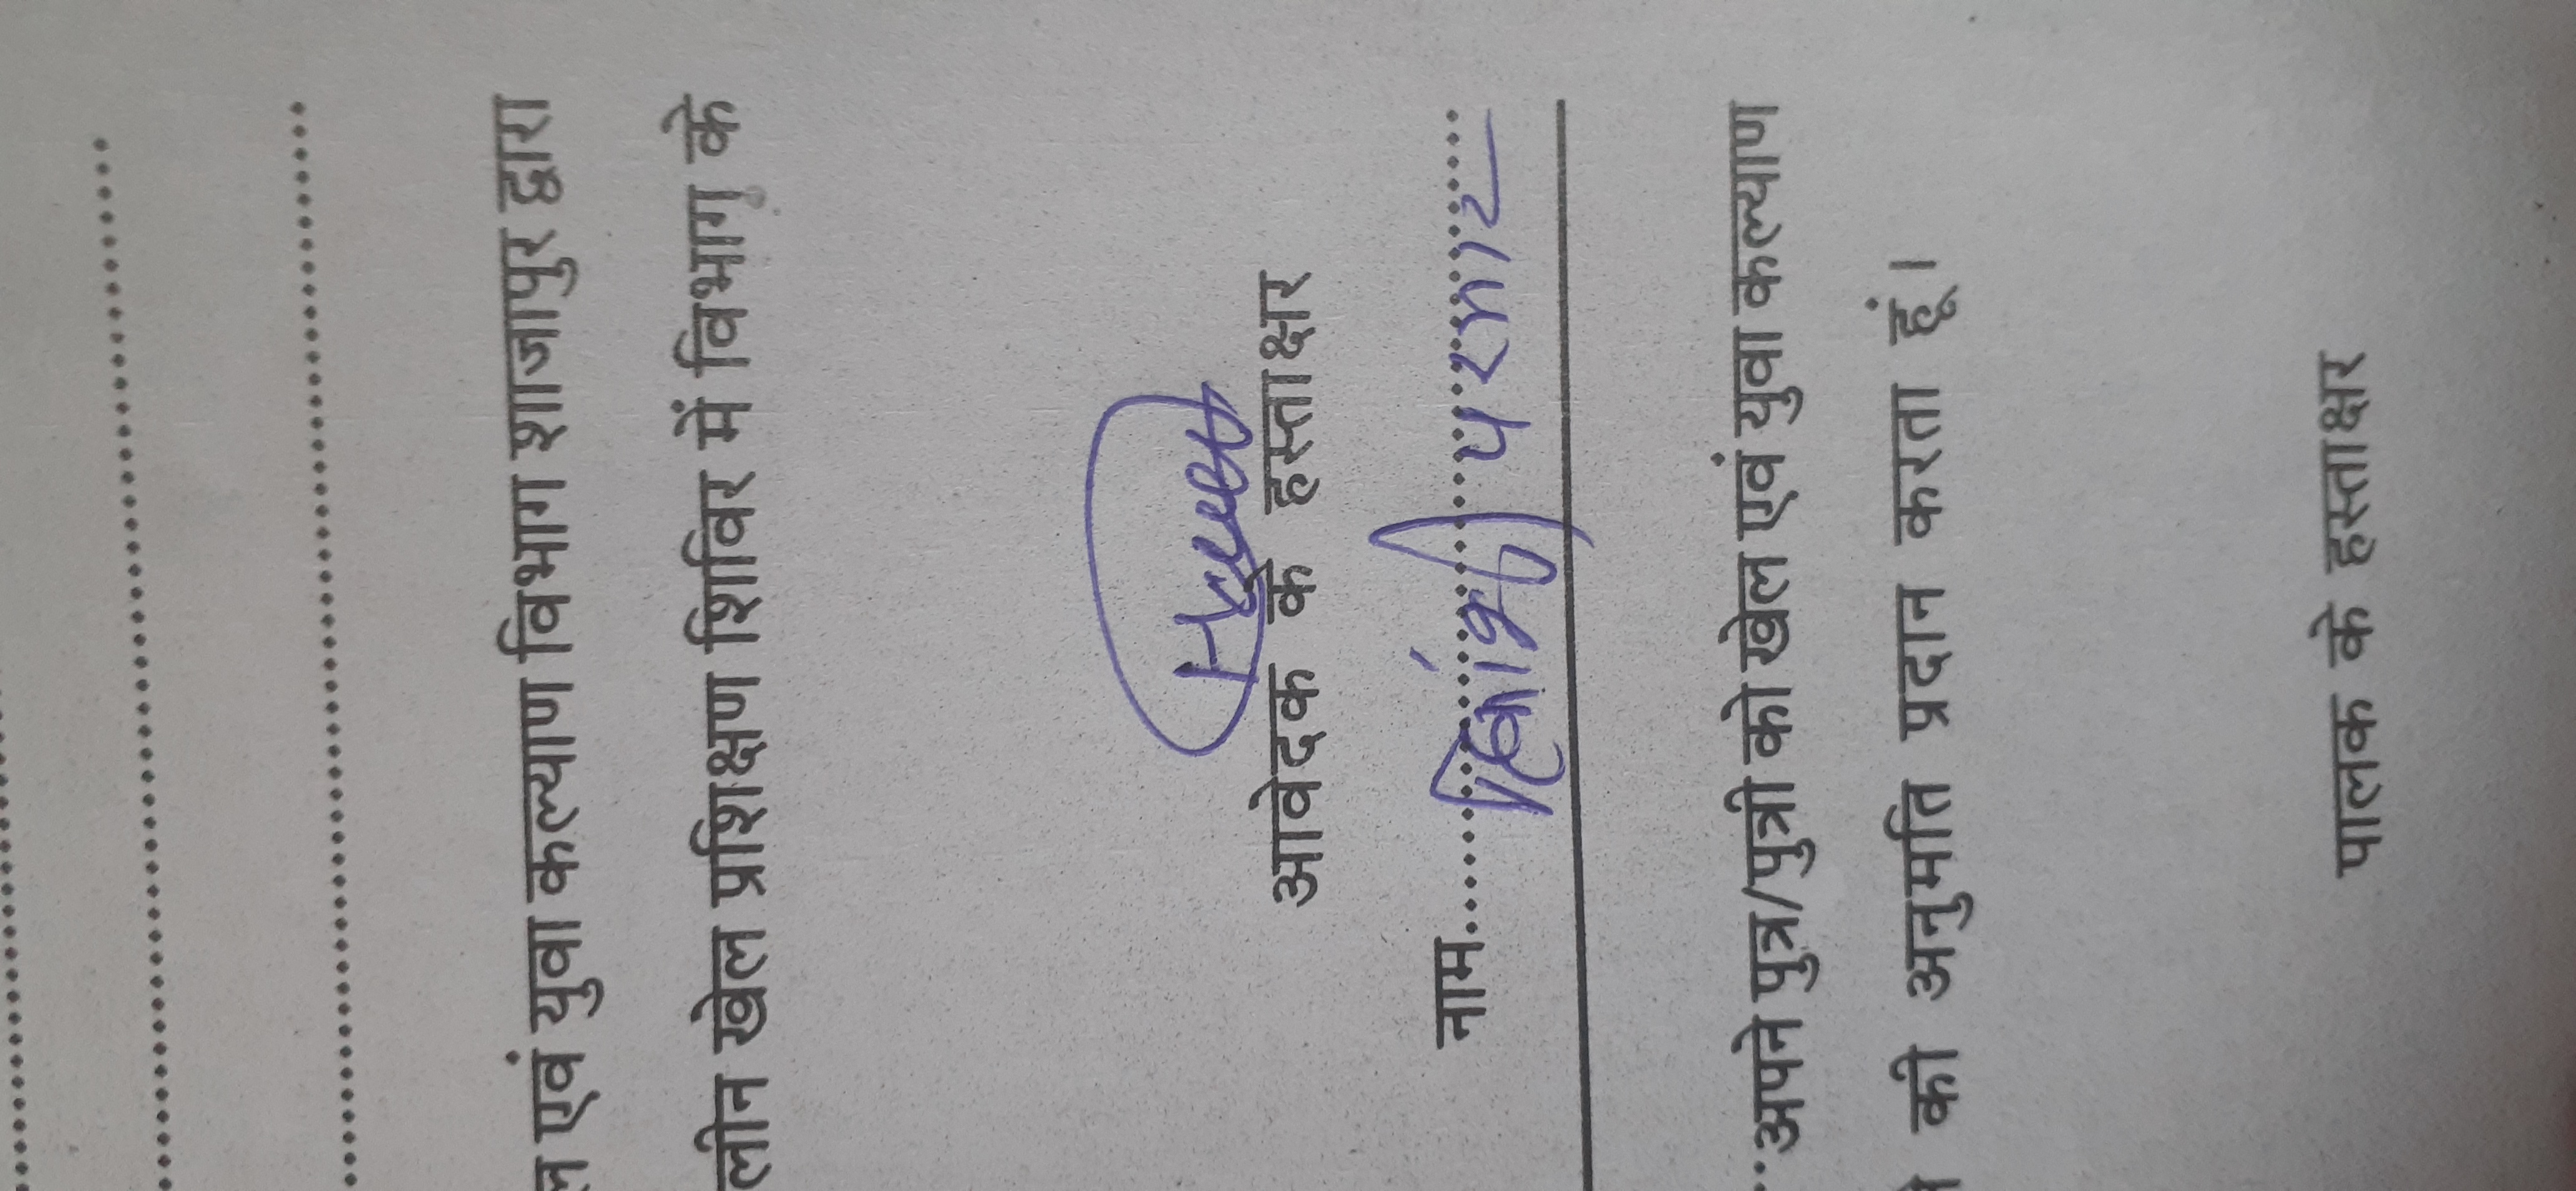 ल एवं युवा कल्याण विभाग शाजापुर द्वारा
लीन खेल प्रशिक्षण शिविर में विभाग के
आवेदक के हस्ताक्षर
नाम.................... परमार
...अपने पुत्र/पुत्री को खेल एवं युवा कल्याण
की अनुमति प्रदान करता हूं।
पालक के हस्ताक्षर